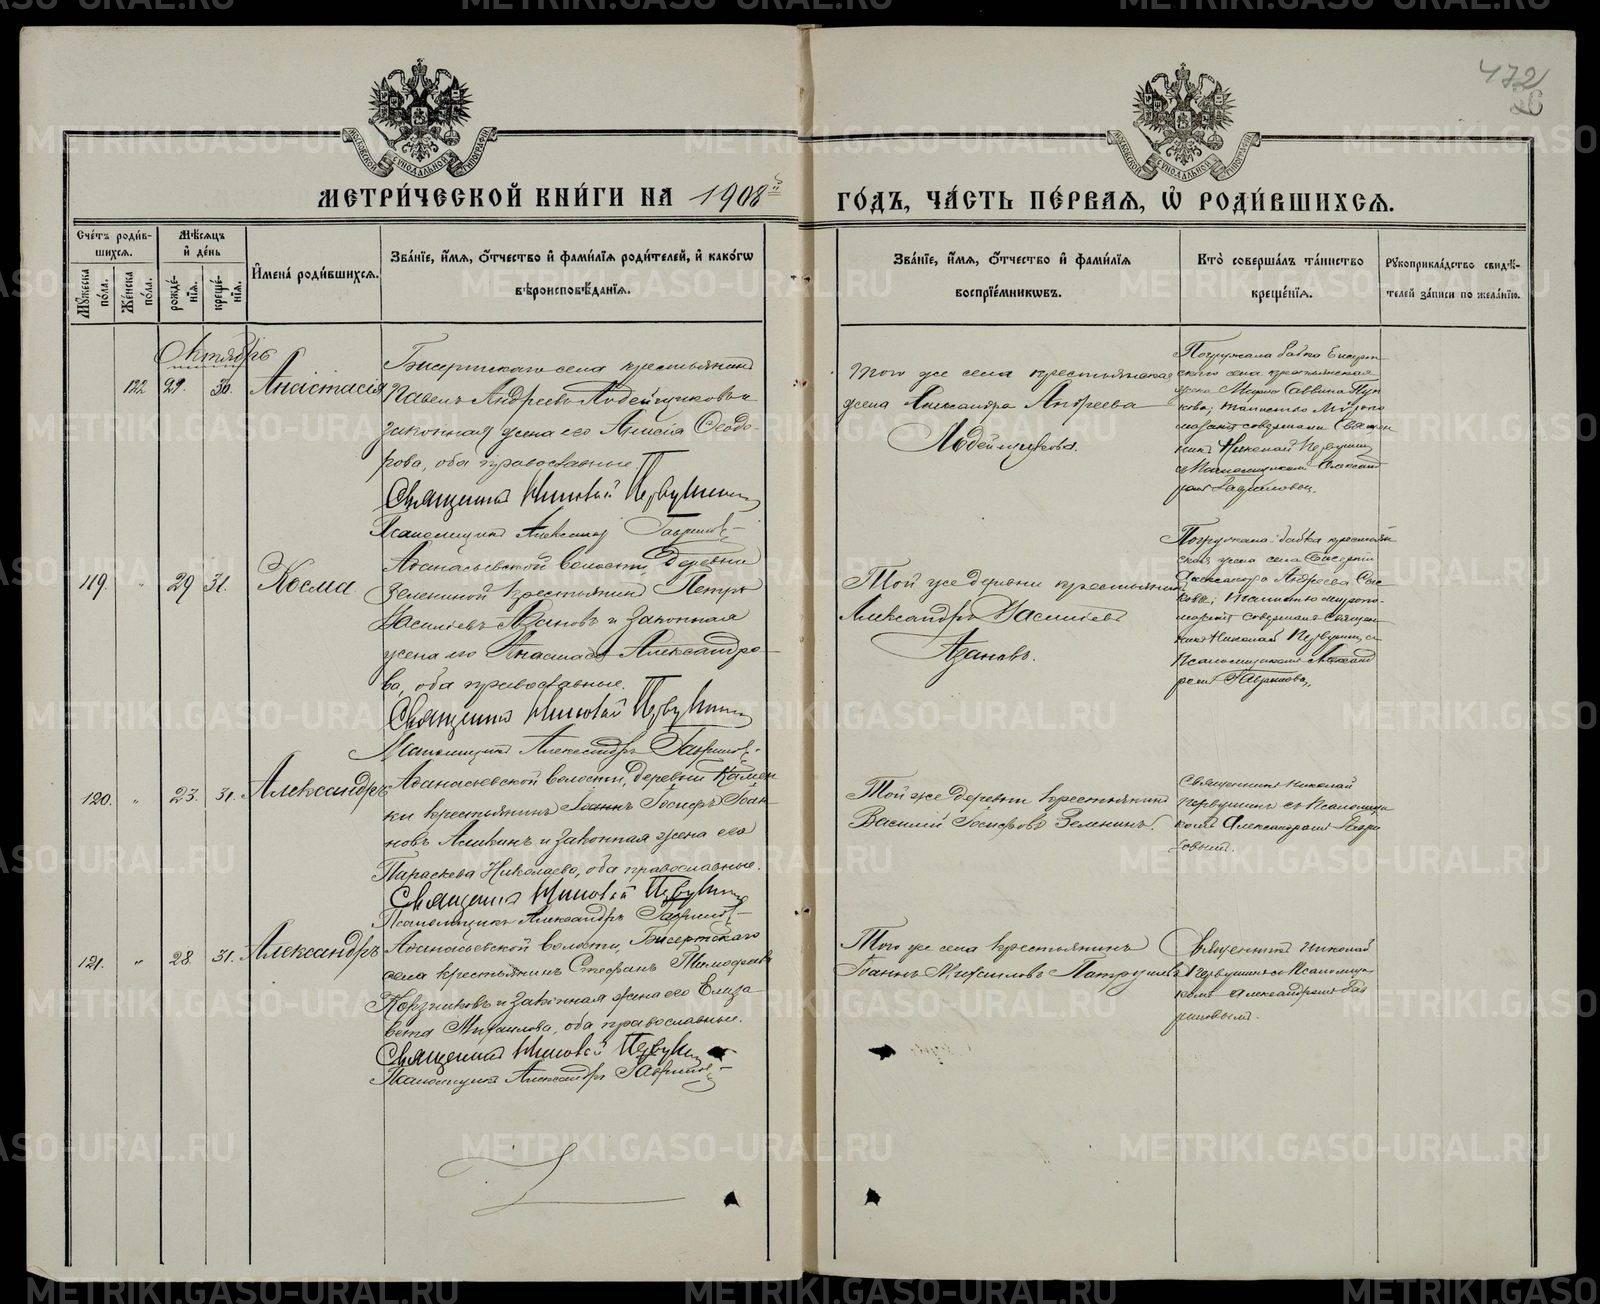 472
26
МЕТРИ́ЧЕСКОЙ КНИ́ГИ НА 1908й
ГО́ДЪ, ЧА́СТЬ ПЕ́РВАѦ, Ѡ РОДИ́ВШИХСѦ.
Сче́тъ роди́в-
шихсѧ.
Мꙋжеска по́ла.
Же́нска по́ла.
Мѣсѧцъ
и҆ де́нь
рожде́-
нїѧ.
креще́-
нїѧ.
И҆мена̀ роди́вшихсѧ.
Зва́нїе, и҆́мѧ, ѻ҆́тчество и҆ фами́лїѧ роди́телей, и҆ како́гѡ
вѣроисповѣ́данїѧ.
Зва́нїе, и҆́мѧ, ѻ҆́тчество и҆ фами́лїѧ
воспрїе́мникѡвъ.
Кто̀ соверша́лъ та́инство
креще́нїѧ.
Рꙋкоприкла́дство свидѣ́-
телей за́писи по жела́нїю.
Октябрь
122 29. 30. Анастасія
Бисертскаго села крестьянинъ
Павелъ Андреевъ Людейщиковъ и
законная жена его Анисія Ѳеодо-
рова, оба православные.
Священникъ Николай Первушинъ
Псаломщикъ Александръ Гавриловъ
Того же села крестьянская
жена Александра Андреева
Людейщикова.
Погружала бабка Бисерт-
скаго села крестьянская
жена Савина
таинство Мѵропо-
мазанія совершали Священ
никъ Николай Первушинъ
съ Псаломщикомъ Александ
ромъ Гавриловым.
119. " 29 31. Косма
Аѳанасьевской волости, деревни
Зелениной крестьянинъ Петръ
Васильевъ Азановъ и законная
жена его Анастасія Александро-
ва, оба православные.
Священникъ Николай Первушинъ
Псаломщикъ Александръ Гавриловъ.
Той же деревни крестьянинъ
Александръ Васильевъ
Азановъ.
Погружала бабка крестьян
ская жена села Бисерти
Александра Андреева
таинство мѵропо-
мазанія совершали Священ
никъ Николай Первушинъ съ
Псаломщикомъ Александ
ромъ Гавриловым.
120. " 23. 31. Александръ
Аѳанасьевской волости, деревни Камен
ки крестьянинъ Іоаннъ
новъ и законная жена его
Параскева Николаева, оба православные.
Священникъ Николай Первушинъ
Псаломщикъ Александръ Гавриловъ
Той же деревни крестьянинъ
Василій Зеленинъ.
Священникъ Николай
Первушинъ съ Псаломщи
комъ Александромъ Гаври
ловым.
121. " 28. 31. Александръ
Аѳанасьевской волости, Бисертскаго
села крестьянинъ Стефанъ Тимофеевъ
и законная жена его Елиза-
вета Михаилова, оба православные.
Священникъ Николай Первушинъ
Псаломщикъ Александръ Гавриловъ
Того же села крестьянинъ
Іоаннъ Михаиловъ Патрушевъ
Священникъ Николай
Первушинъ съ Псаломщи
комъ Александромъ Гав
риловымъ.
METRIKI.GASO-URAL.RU